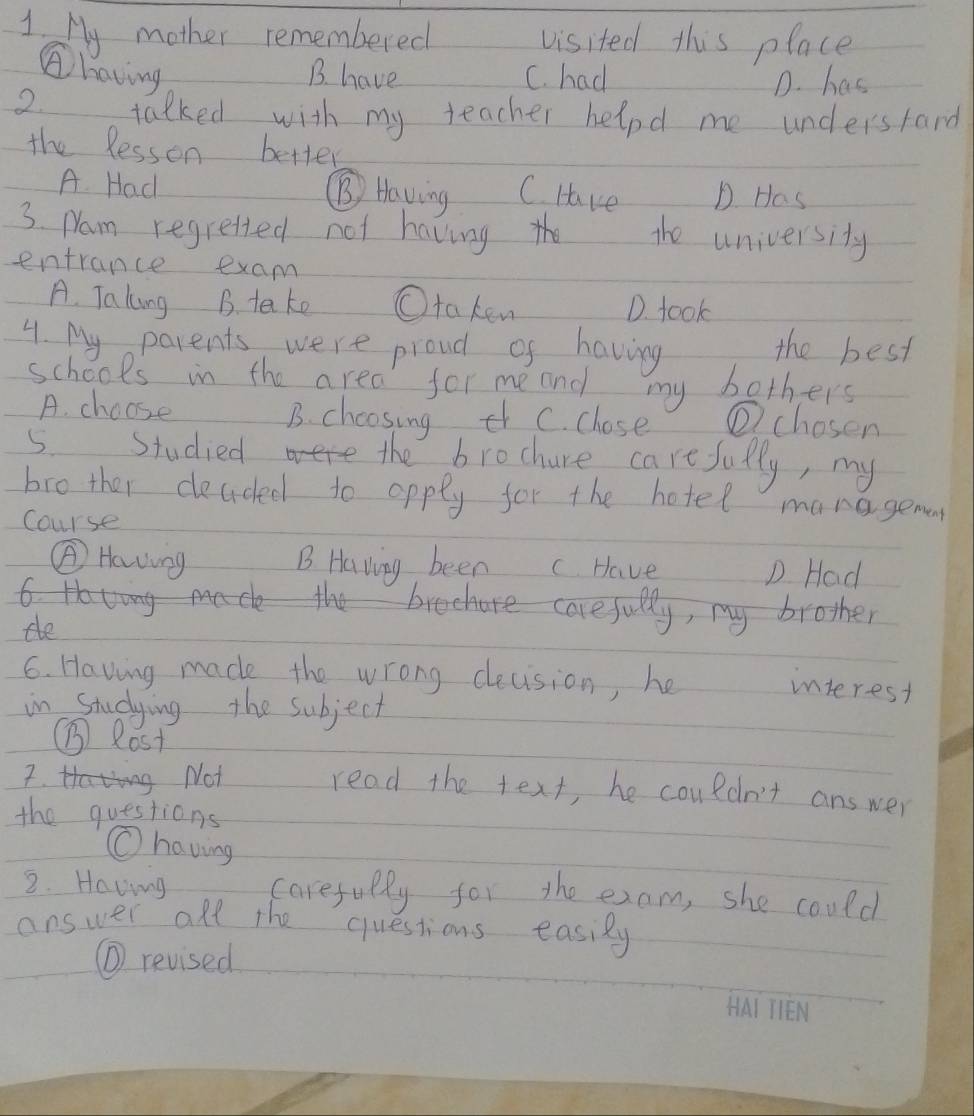 1. My mother remembered visited this place
A having B. have C. had D. has
2. talked with my teacher helpd me understand
the lesson better
A. Had B Having C. Have D Has
3. Nam regretted not having the the university
entrance exam
A. Taking B. take C taken D. took
4. My parents were proud of having the best
schools in the area for me and my bothers
A. choose B. choosing C. Chose D chosen
5. Studied were the brochure carefully, my
brother decided to apply for the hotel management
course
A Having B Having been C. Have D Had
6. Having made the brochure carefully, my brother
de
6. Having made the wrong decision, he interest
in studying the subject
B lost
7. Having Not read the text, he couldn't answer
the questions
C having
8. Having carefully for the exam, she could
answer all the questions easily
D revised
HẢI TIẾN